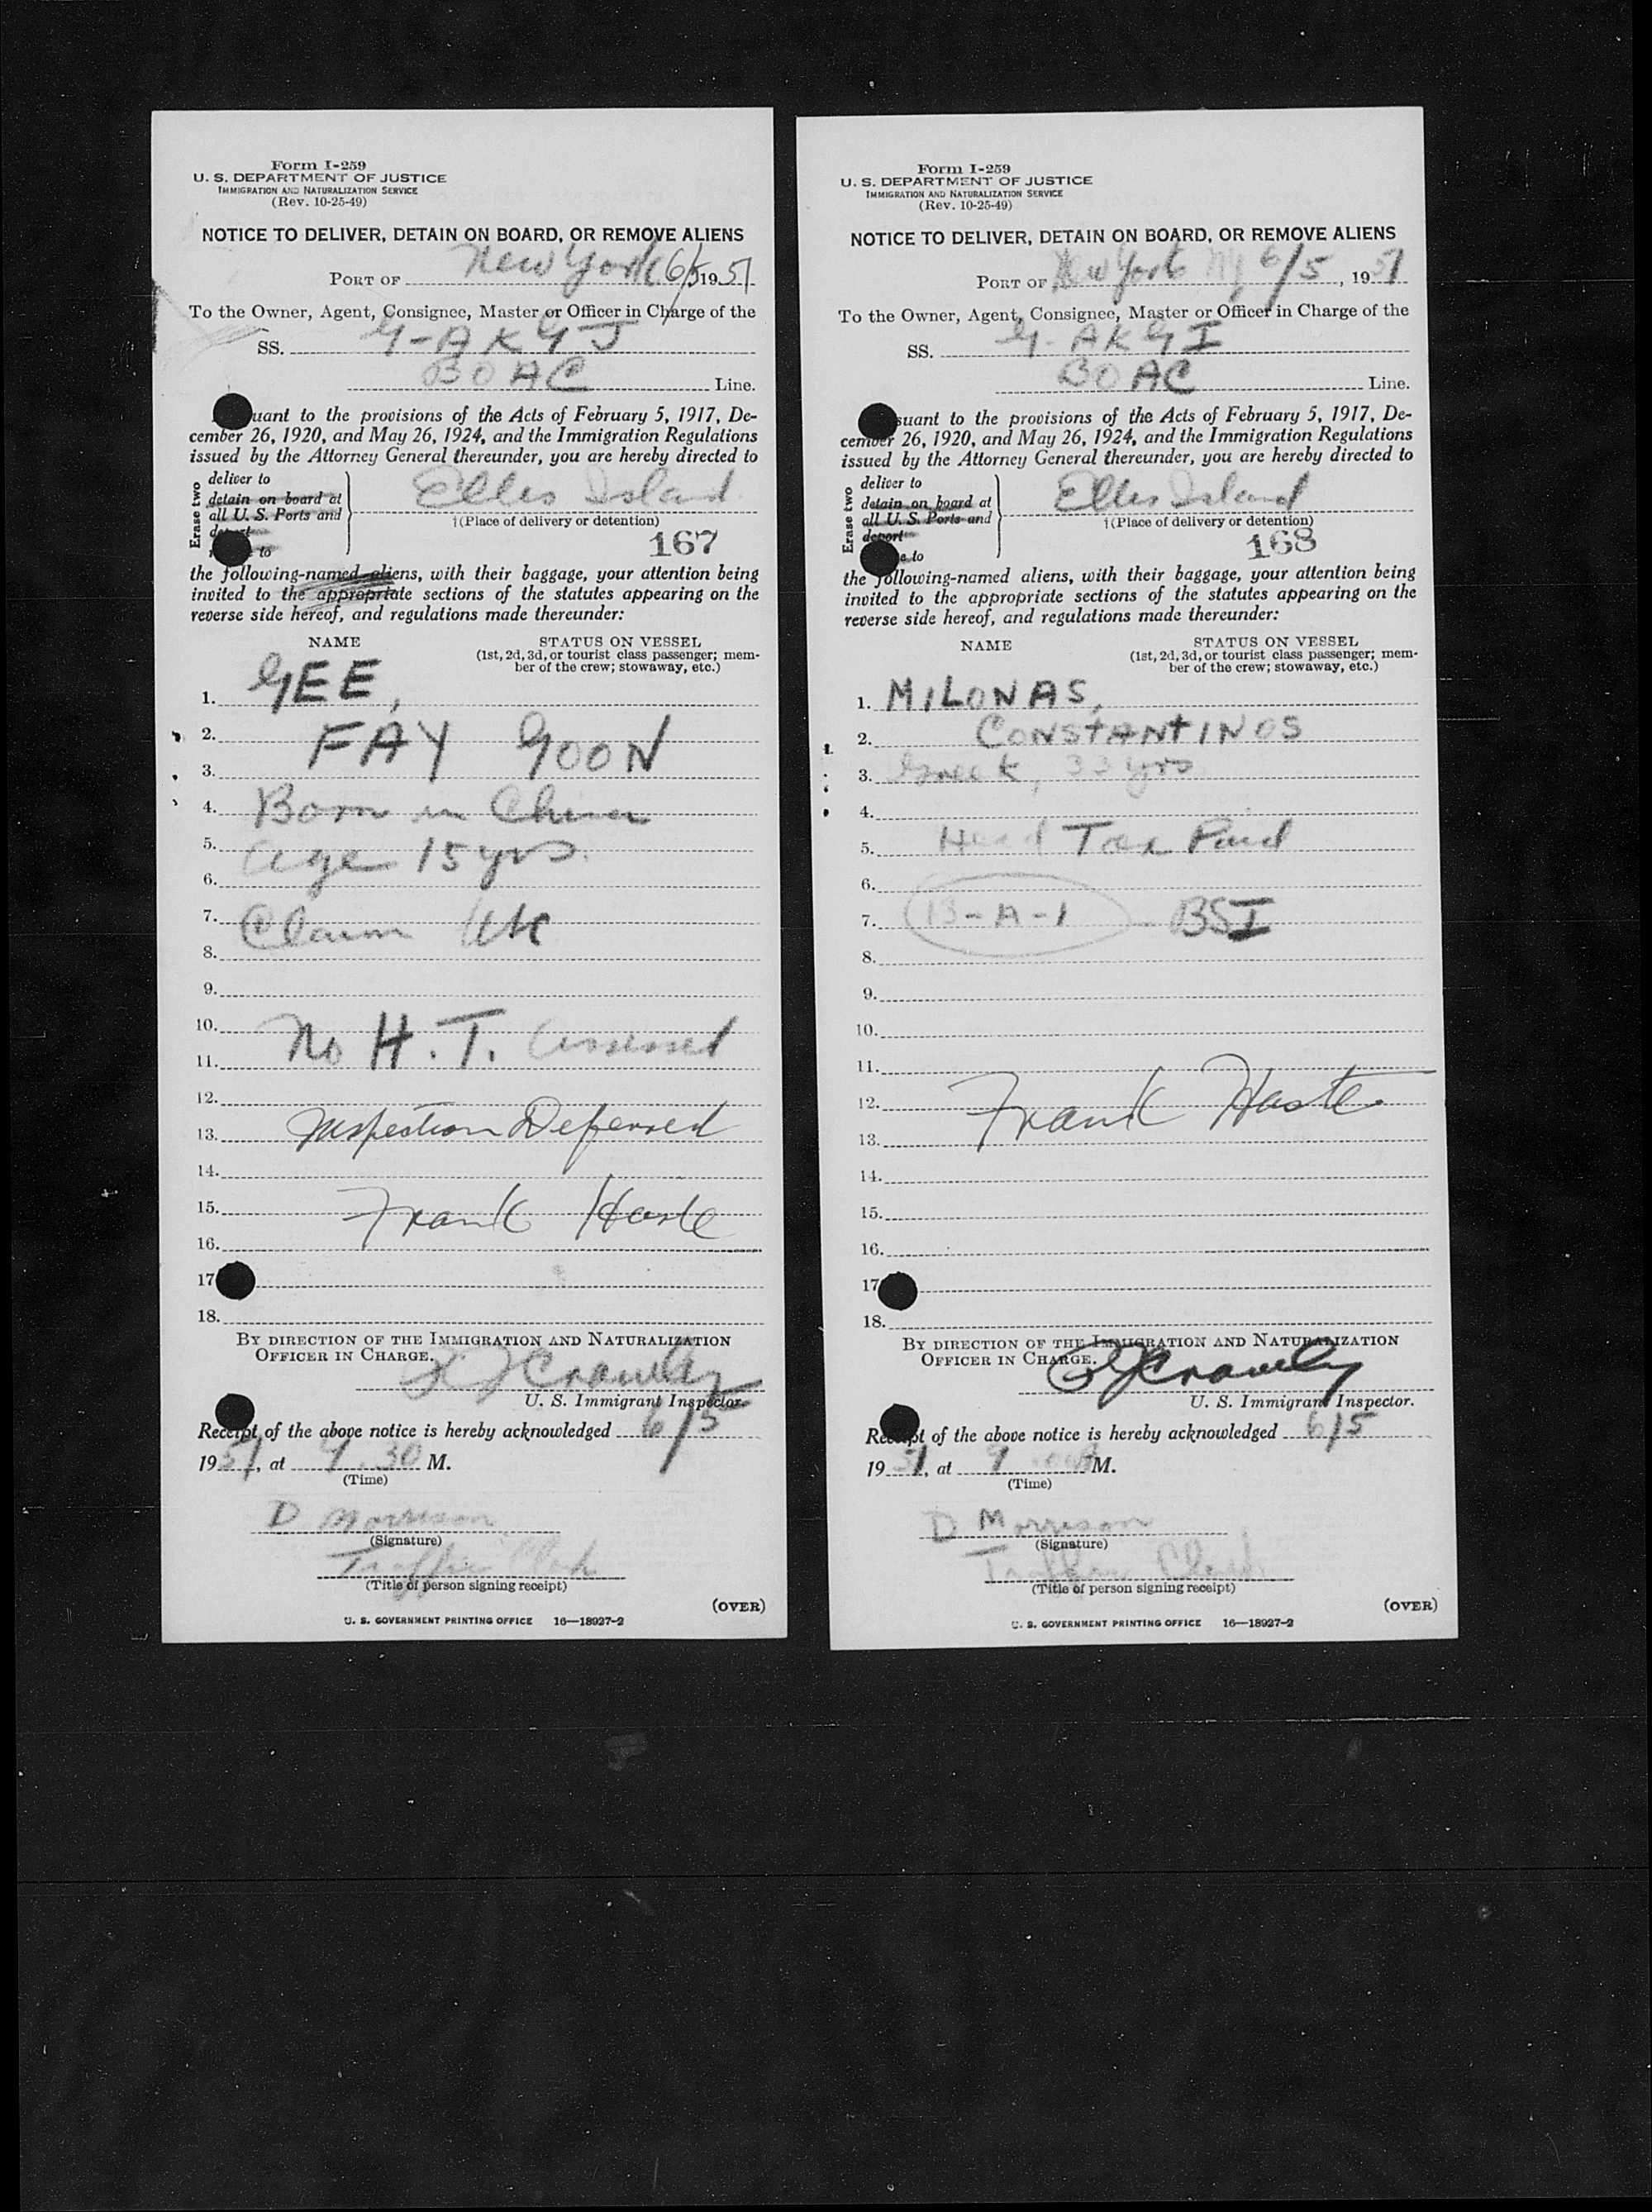 Form I-259
U. S. DEPARTMENT OF JUSTICE
IMMIGRATION AND NATURALIZATION SERVICE
(Rev. 10-25-49)
NOTICE TO DELIVER, DETAIN ON BOARD, OR REMOVE ALIENS
PORT OF New York 6/5 1951
To the Owner, Agent, Consignee, Master or Officer in Charge of the
SS. G-AKGJ
BOAC Line.
uant to the provisions of the Acts of February 5, 1917, De-
cember 26, 1920, and May 26, 1924, and the Immigration Regulations
issued by the Attorney General thereunder, you are hereby directed to
Erase two
deliver to
detain on board at
all U. S. Ports and
to
Ellis Island
†(Place of delivery or detention)
167
the following-named aliens, with their baggage, your attention being
invited to the appropriate sections of the statutes appearing on the
reverse side hereof, and regulations made thereunder:
NAME STATUS ON VESSEL
(1st, 2d, 3d, or tourist class passenger; mem-
ber of the crew; stowaway, etc.)
1. GEE,
2. FAY GOON
3.
4. Born in China
5. age 15 yrs.
6.
7. Claim
8.
9.
10. No H. T. assessed
11.
12.
13. Inspection Deferred
14.
15. Frank Haste
16.
17
18.
BY DIRECTION OF THE IMMIGRATION AND NATURALIZATION
OFFICER IN CHARGE.
Crawley
U. S. Immigrant Inspector.
Receipt of the above notice is hereby acknowledged 6/5
1951, at 9.30 M.
(Time)
D Morrison
(Signature)
Traffic Clerk
(Title of person signing receipt)
(OVER)
U. S. GOVERNMENT PRINTING OFFICE 16—18927-2
Form I-259
U. S. DEPARTMENT OF JUSTICE
IMMIGRATION AND NATURALIZATION SERVICE
(Rev. 10-25-49)
NOTICE TO DELIVER, DETAIN ON BOARD, OR REMOVE ALIENS
PORT OF New York NY 6/5, 1951
To the Owner, Agent, Consignee, Master or Officer in Charge of the
SS. G-AKGI
BOAC Line.
suant to the provisions of the Acts of February 5, 1917, De-
cember 26, 1920, and May 26, 1924, and the Immigration Regulations
issued by the Attorney General thereunder, you are hereby directed to
Erase two
deliver to
detain on board at
all U. S. Ports and
deport
e to
Ellis Island
†(Place of delivery or detention)
168
the following-named aliens, with their baggage, your attention being
invited to the appropriate sections of the statutes appearing on the
reverse side hereof, and regulations made thereunder:
NAME STATUS ON VESSEL
(1st, 2d, 3d, or tourist class passenger; mem-
ber of the crew; stowaway, etc.)
1. MILONAS,
2. CONSTANTINOS
3. Greek, 33 yrs
4.
5. Head Tax Paid
6.
7. 13-A-1 BSI
8.
9.
10.
11.
12. Frank Haste
13.
14.
15.
16.
17
18.
BY DIRECTION OF THE IMMIGRATION AND NATURALIZATION
OFFICER IN CHARGE.
Crawley
U. S. Immigrant Inspector.
Receipt of the above notice is hereby acknowledged 6/5
1951, at 9 M.
(Time)
D Morrison
(Signature)
Traffic Clerk
(Title of person signing receipt)
(OVER)
U. S. GOVERNMENT PRINTING OFFICE 16—18927-2